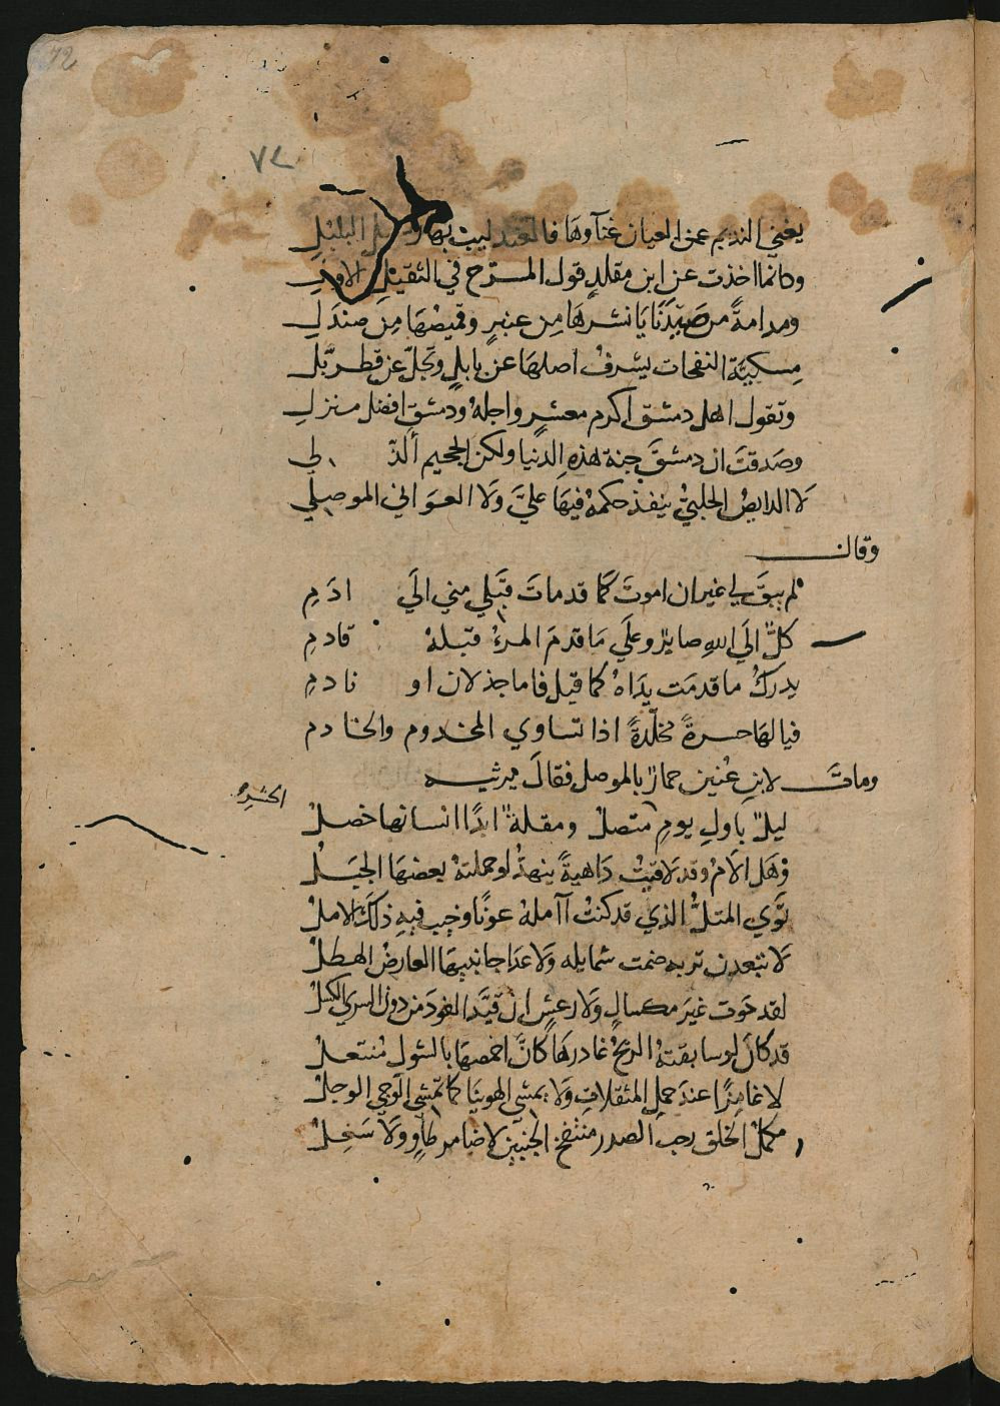 72
٧٢
يغني النديم عن العيان غنآوها فالعندليب بها البلبل
وكانما اخذت عن ابن مقلدٍ قول المسرّح في الثقيل الاول
ومدامةً من صَيّدَنَايَا نشرهَا مِن عنبرٍ وقميصُهَا مِن صندَلِ
مِسكيّة النفحات يشرفُ اصلهَا عن بابلٍ وتجلّ عن قطربّل
وتقول اهل دمشق اكرم معشرٍ واجلهُ ودمشق افضل منزلِ
وصَدقتَ ان دمشقَ جنة هذهِ الدنيا ولكن الجحيم ألذّ لي
لَا الدايصُ الحلبيُّ ينفذ حكمهُ فيهَا عليَّ وَلَا العوَاني الموصِلي
وقال
لم يبقَ لي غير ان اموتَ كمَا قد ماتَ قبَلي مني الَي ادَمِ
كلٌّ الَي اللهِ صايرٌ وعلَي مَا قدمَ المرءُ قبلهُ قادمِ
يدركُ ما قدمَت يدَاهُ كما قيل فاما جذلان او نادمِ
فيا لهَا حسرةً مخلّدةً اذا تساوي المخدوم والخادم
وماتَ لابنِ عُنين حمارٌ بالموصل فقالَ يرثيه
ليلٌ باولِ يومِ متصلُ ومقلةٌ ابدًا انسانها خضلُ
وَهَل الَامُ وقد لَاقيتُ دَاهيةً ينهدُّ لو حملتهُ بعضهَا الجبَلُ
ثوَي المتلُّ الذي قد كنتُ آملهُ عونًا وخيب فيهِ ذلكَ الاملُ
لَا تبعدن تربه ضمت شمايله وَلَا عدَا جانبيهَا العارضُ الهطلُ
لقد حَوت غيَر مكسالٍ وَلَا رعشٍ ان قيَّد القودَ من دون السري الكسلُ
قد كانَ لو سابقتهُ الريحُ غادرهَا كانَّ اخمصهَا بالشول مُنتعلُ
لا غامزًا عندَ حملِ المثقلاتِ وَلَا يمشي الهوينَا كما تمشي الوجي الوجلُ
مكملُ الخلق رحب الصدر منتفخ الجنبين لَا ضامر طاوٍ وَلَا سَغِلُ